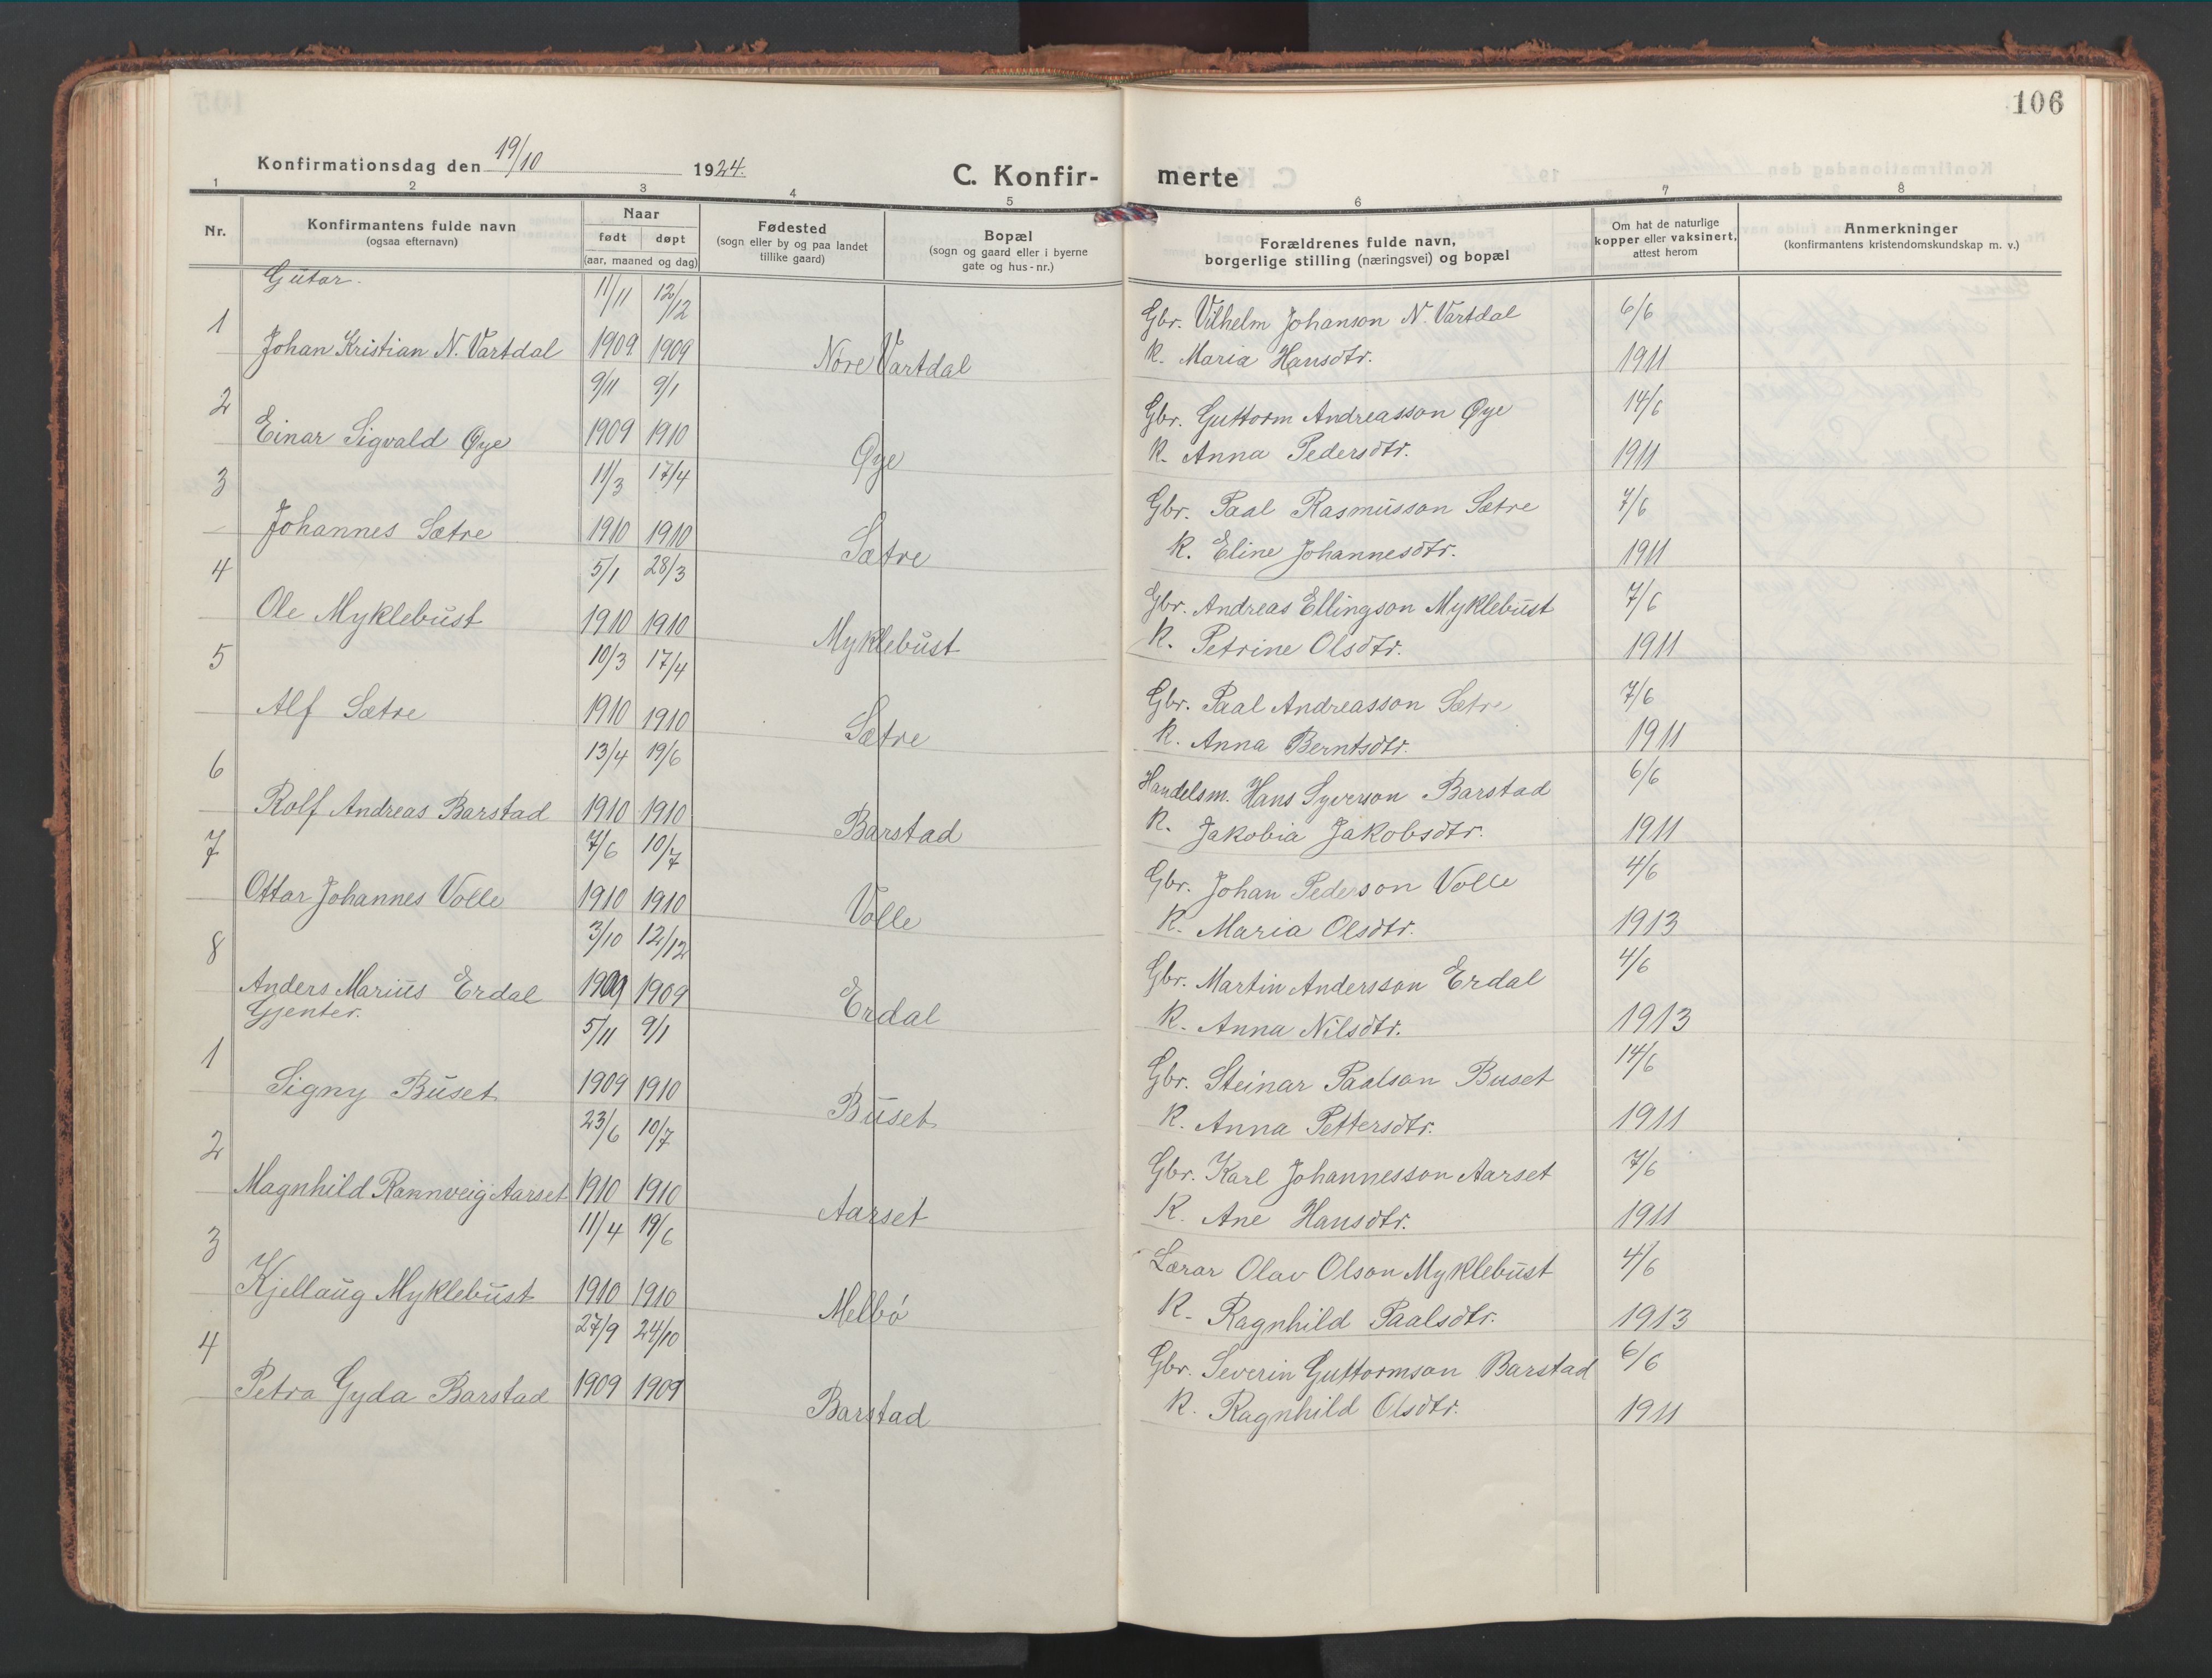 106
Konfirmationsdag den 19/10 1924.
C. Konfir- merte
1 2 3 4 5 6 7 8
Nr.
Konfirmantens fulde navn
(ogsaa efternavn)
Naar
født døpt
(aar, maaned og dag)
Fødested
(sogn eller by og paa landet
tillike gaard)
Bopæl
(sogn og gaard eller i byerne
gate og hus-nr.)
Forældrenes fulde navn,
borgerlige stilling (næringsvei) og bopæl
Om hat de naturlige
kopper eller vaksinert,
attest herom
Anmerkninger
(konfirmantens kristendomskundskap m. v.)
Gutar.
1 11/11 12/12 Gbr. Vilhelm Johanson N. Vartdal 6/6
Johan Kristian N. Vartdal 1909 1909 Nore Vartdal K. Maria Hansdtr. 1911
2 9/11 9/1 Gbr. Guttorm Andreasson Øye 14/6
Einar Sigvald Øye 1909 1910 Øye K. Anna Pedersdtr. 1911
3 11/3 17/4 Gbr. Paal Rasmusson Sætre 7/6
Johannes Sætre 1910 1910 Sætre K. Eline Johannesdtr. 1911
4 5/1 28/3 Gbr. Andreas Ellingson Myklebust 7/6
Ole Myklebust 1910 1910 Myklebust K. Petrine Olsdtr. 1911
5 10/3 17/4 Gbr. Paal Andreasson Sætre 7/6
Alf Sætre 1910 1910 Sætre K. Anna Berntsdtr. 1911
6 13/4 19/6 Handelsm. Hans Syverson Barstad 6/6
Rolf Andreas Barstad 1910 1910 Barstad K. Jakobia Jakobsdtr. 1911
7 7/6 10/7 Gbr. Johan Pederson Volle 4/6
Ottar Johannes Volle 1910 1910 Volle K. Maria Olsdtr. 1913
8 3/10 12/12 Gbr. Martin Andersson Erdal 4/6
Anders Marius Erdal 1909 1909 Erdal K. Anna Nilsdtr. 1913
Gjenter.
1 5/11 9/1 Gbr. Steinar Paalson Buset 14/6
Signy Buset 1909 1910 Buset K. Anna Pettersdtr. 1911
2 23/6 10/7 Gbr. Karl Johannesson Aarset 7/6
Magnhild Rannveig Aarset 1910 1910 Aarset K. Ane Hansdtr. 1911
3 11/4 19/6 Lærar Olav Olson Myklebust 4/6
Kjellaug Myklebust 1910 1910 Melbø K. Ragnhild Paalsdtr. 1913
4 27/9 24/10 Gbr. Severin Guttormson Barstad 6/6
Petra Gyda Barstad 1909 1909 Barstad K. Ragnhild Olsdtr. 1911